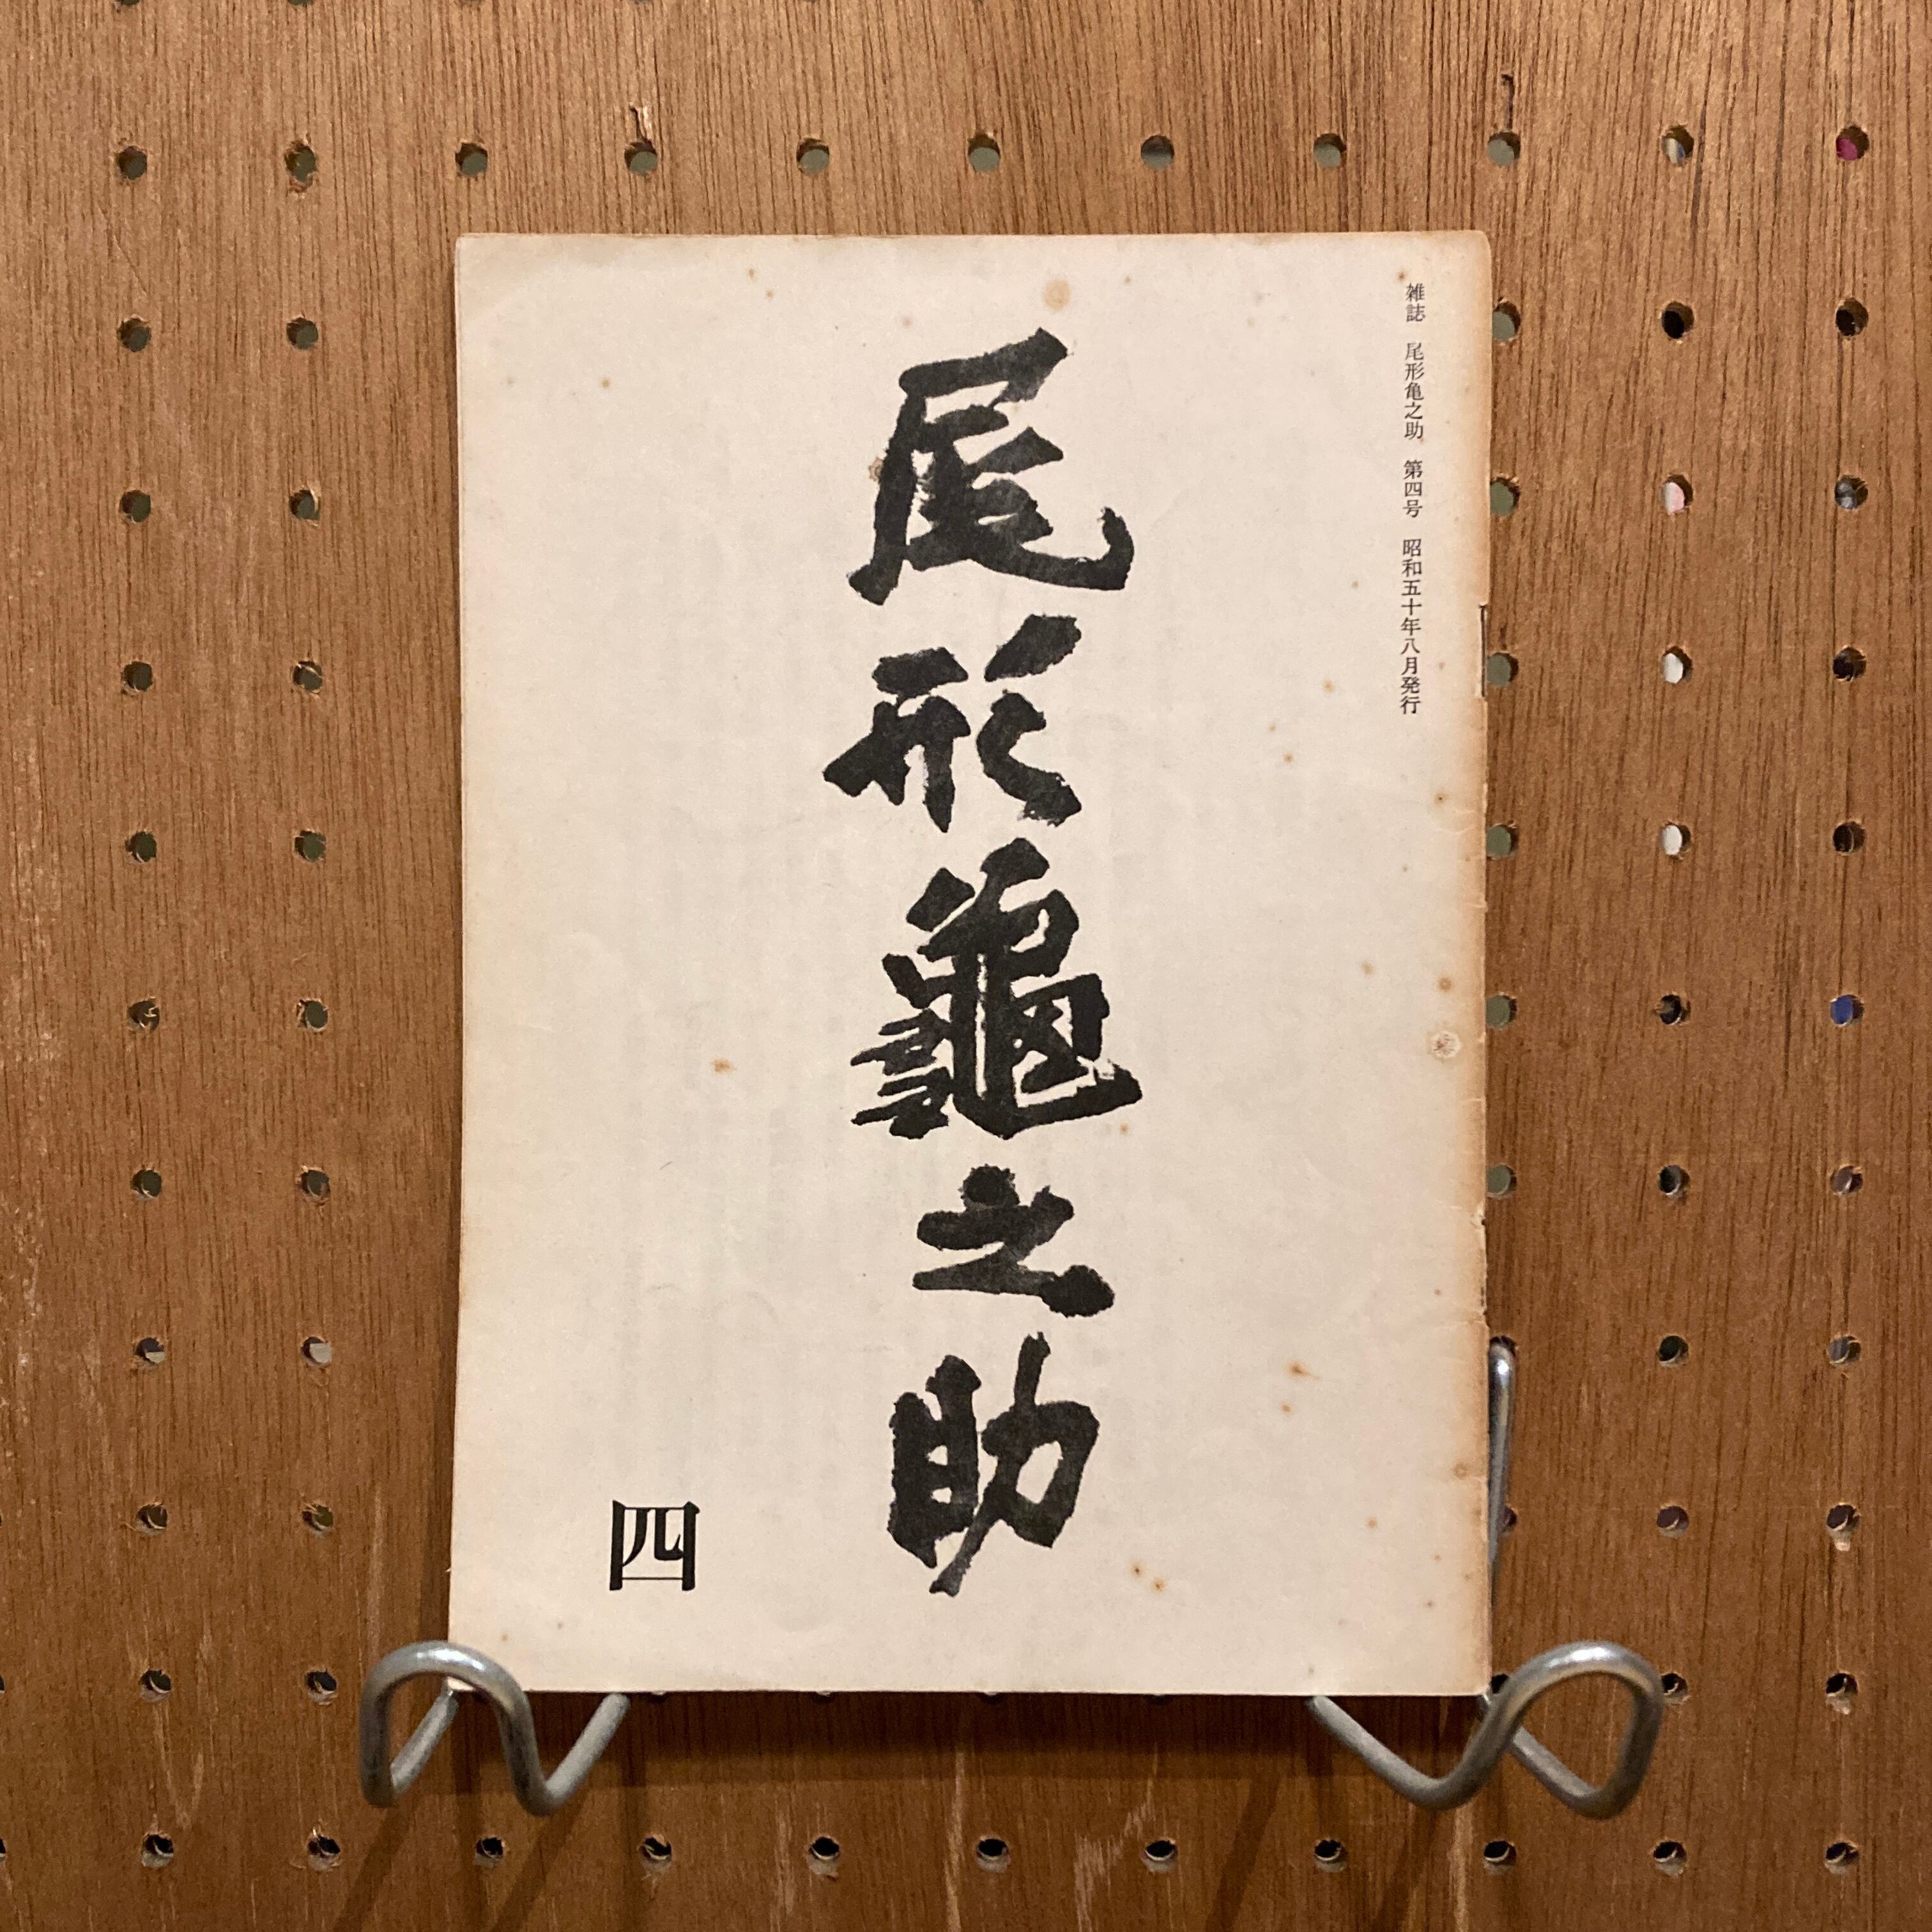 雑誌 尾形亀之助 第四号 昭和五十年八月発行
尾形龜之助
四